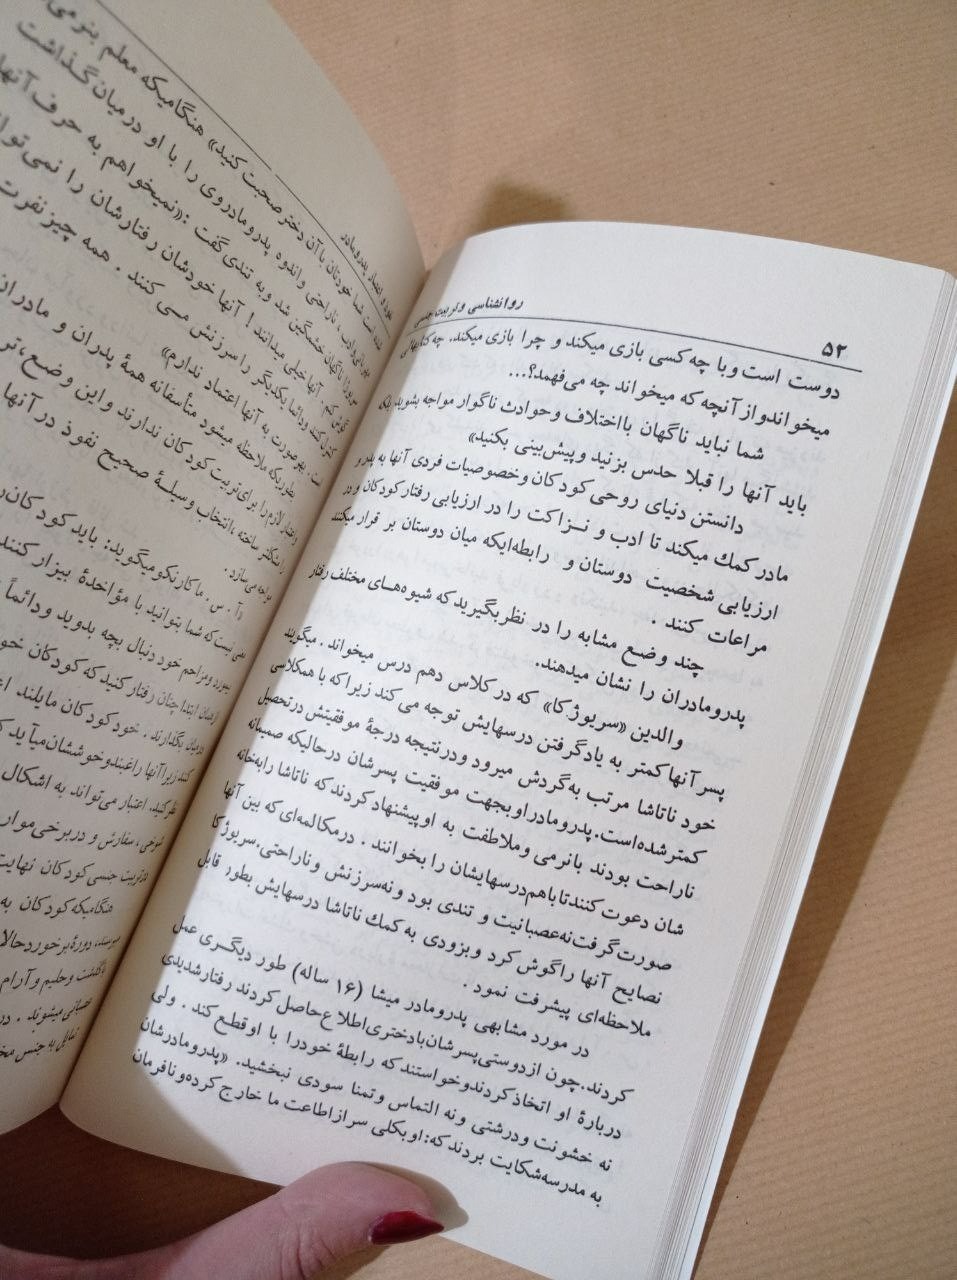 ۵۲
روانشناسی وتربیت جنسی
دوست است وبا چه کسی بازی میکند و چرا بازی میکند. چه کتابهائی
میخواندواز آنچه که میخواند چه می‌فهمد؟...
شما نباید ناگهان بااختلاف وحوادث ناگوار مواجه بشوید بلکه
باید آنها را قبلا حدس بزنید وپیش‌بینی بکنید»
دانستن دنیای روحی کودکان وخصوصیات فردی آنها به پدر و
مادر کمك میکند تا ادب و نزاکت را در ارزیابی رفتار کودکان و در
ارزیابی شخصیت دوستان و رابطه‌ایکه میان دوستان بر قرار میکنند
مراعات کنند .
چند وضع مشابه را در نظر بگیرید که شیوه‌های مختلف رفتار
پدرومادران را نشان میدهند.
والدین «سریوژ.کا» که در کلاس دهم درس میخواند . میگویند
پسر آنها کمتر به یادگرفتن درسهایش توجه می کند زیرا که با همکلاسی
خود ناتاشا مرتب به گردش میرود ودرنتیجه درجهٔ موفقیتش درتحصیل
کمتر شده‌است. پدرومادر او بجهت موفقیت پسرشان درحالیکه صمیمانه
ناراحت بودند بانرمی وملاطفت به او پیشنهاد کردند که ناتاشا رابه‌خانه
شان دعوت کنند تا باهم‌درسهایشان را بخوانند . درمکالمه‌ای که بین آنها
صورت گرفت نه عصبانیت و تندی بود و نه‌سرزنش وناراحتی. سریوژ کا
نصایح آنها را گوش کرد و بزودی به کمك ناتاشا درسهایش بطور قابل
ملاحظه‌ای پیشرفت نمود .
در مورد مشابهی پدرومادر میشا (۱۶ ساله) طور دیگری عمل
کردند. چون از دوستی پسرشان بادختری اطلاع حاصل کردند رفتارشدیدی
دربارهٔ او اتخاذ کردند وخواستند که رابطهٔ خودرا با او قطع کند . ولی
نه خشونت ودرشتی ونه التماس وتمنا سودی نبخشید. «پدرومادرشان
به مدرسه‌شکایت بردند که: او بکلی سر از اطاعت ما خارج کرده ونافرمان
نفوذ و اعتبار پدرومادر
شما خودتان باآن دختر صحبت کنید» هنگامیکه معلم بنرمی
ناراحتی واندوه پدرومادروی را با او درمیان گذاشت
ناگهان خشمگین شد و به تندی گفت :«نمیخواهم به حرف آنها
آنها خیلی میدانند ! آنها خودشان رفتارشان را نمی‌توا
ودائما یکدیگر را سرزنش می کنند . همه چیز نفرت
به آنها اعتماد ندارم»
بطوریکه ملاحظه میشود متأسفانه همهٔ پدران و مادران
لازم را برای تربیت کودکان ندارند و این وضع،
باانتخاب وسیلهٔ صحیح نفوذ در آنها
مواجه می‌سازد .
«آ . س . ما کارنکو میگوید: باید کودکان
نیست که شما بتوانید با مؤاخذهٔ بیزار کنند
ومزاحم خود دنبال بچه بدوید و دائماً
ابتدا چنان رفتار کنید که کودکان
بگذارند . خود کودکان مایلند
زیرا آنها راغبند وخوششان میآید
اعتبار می‌تواند به اشکال
، سفارش و در برخی موارد
تربیت جنسی کودکان نهایت
هنگامیکه کودکان به
دورهٔ برخورد حالا
وحلیم و آرام
عصبانی میشوند . در
تمایل به جنس